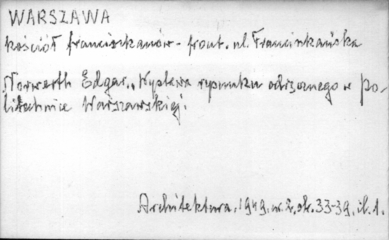 WARSZAWA
kościół franciszkanów - front. ul. Franciszkańska
Norwerth Edgar., Wystawa rysunku odręcznego w po-
litechnice Warszawskiej.
Architektura. 1949. nr. 2. str. 33-39, il. 1.